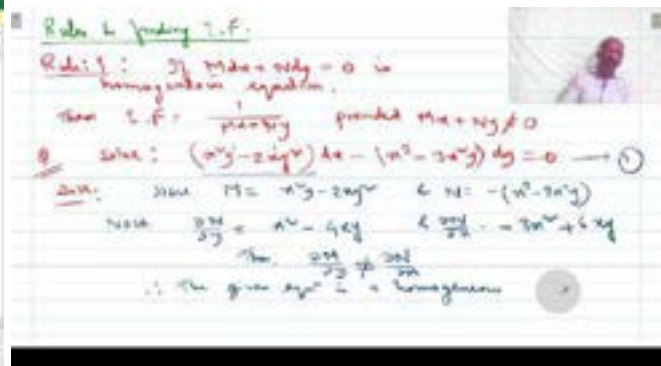 Rules to finding I.F.
Rule:1: If Mdx + Ndy = 0 is
homogeneous equation.
Then I.F = 1/(Mx+Ny) provided Mx + Ny ≠ 0
Q solve: (x²y - 2xy²) dx - (x³ - 3x²y) dy = 0 → ①
Soln: M = x²y - 2xy² & N = -(x³ - 3x²y)
Now ∂M/∂y = x² - 4xy & ∂N/∂x = -3x² + 6xy
∂M/∂y ≠ ∂N/∂x
∴ The given eqn is a homogeneous